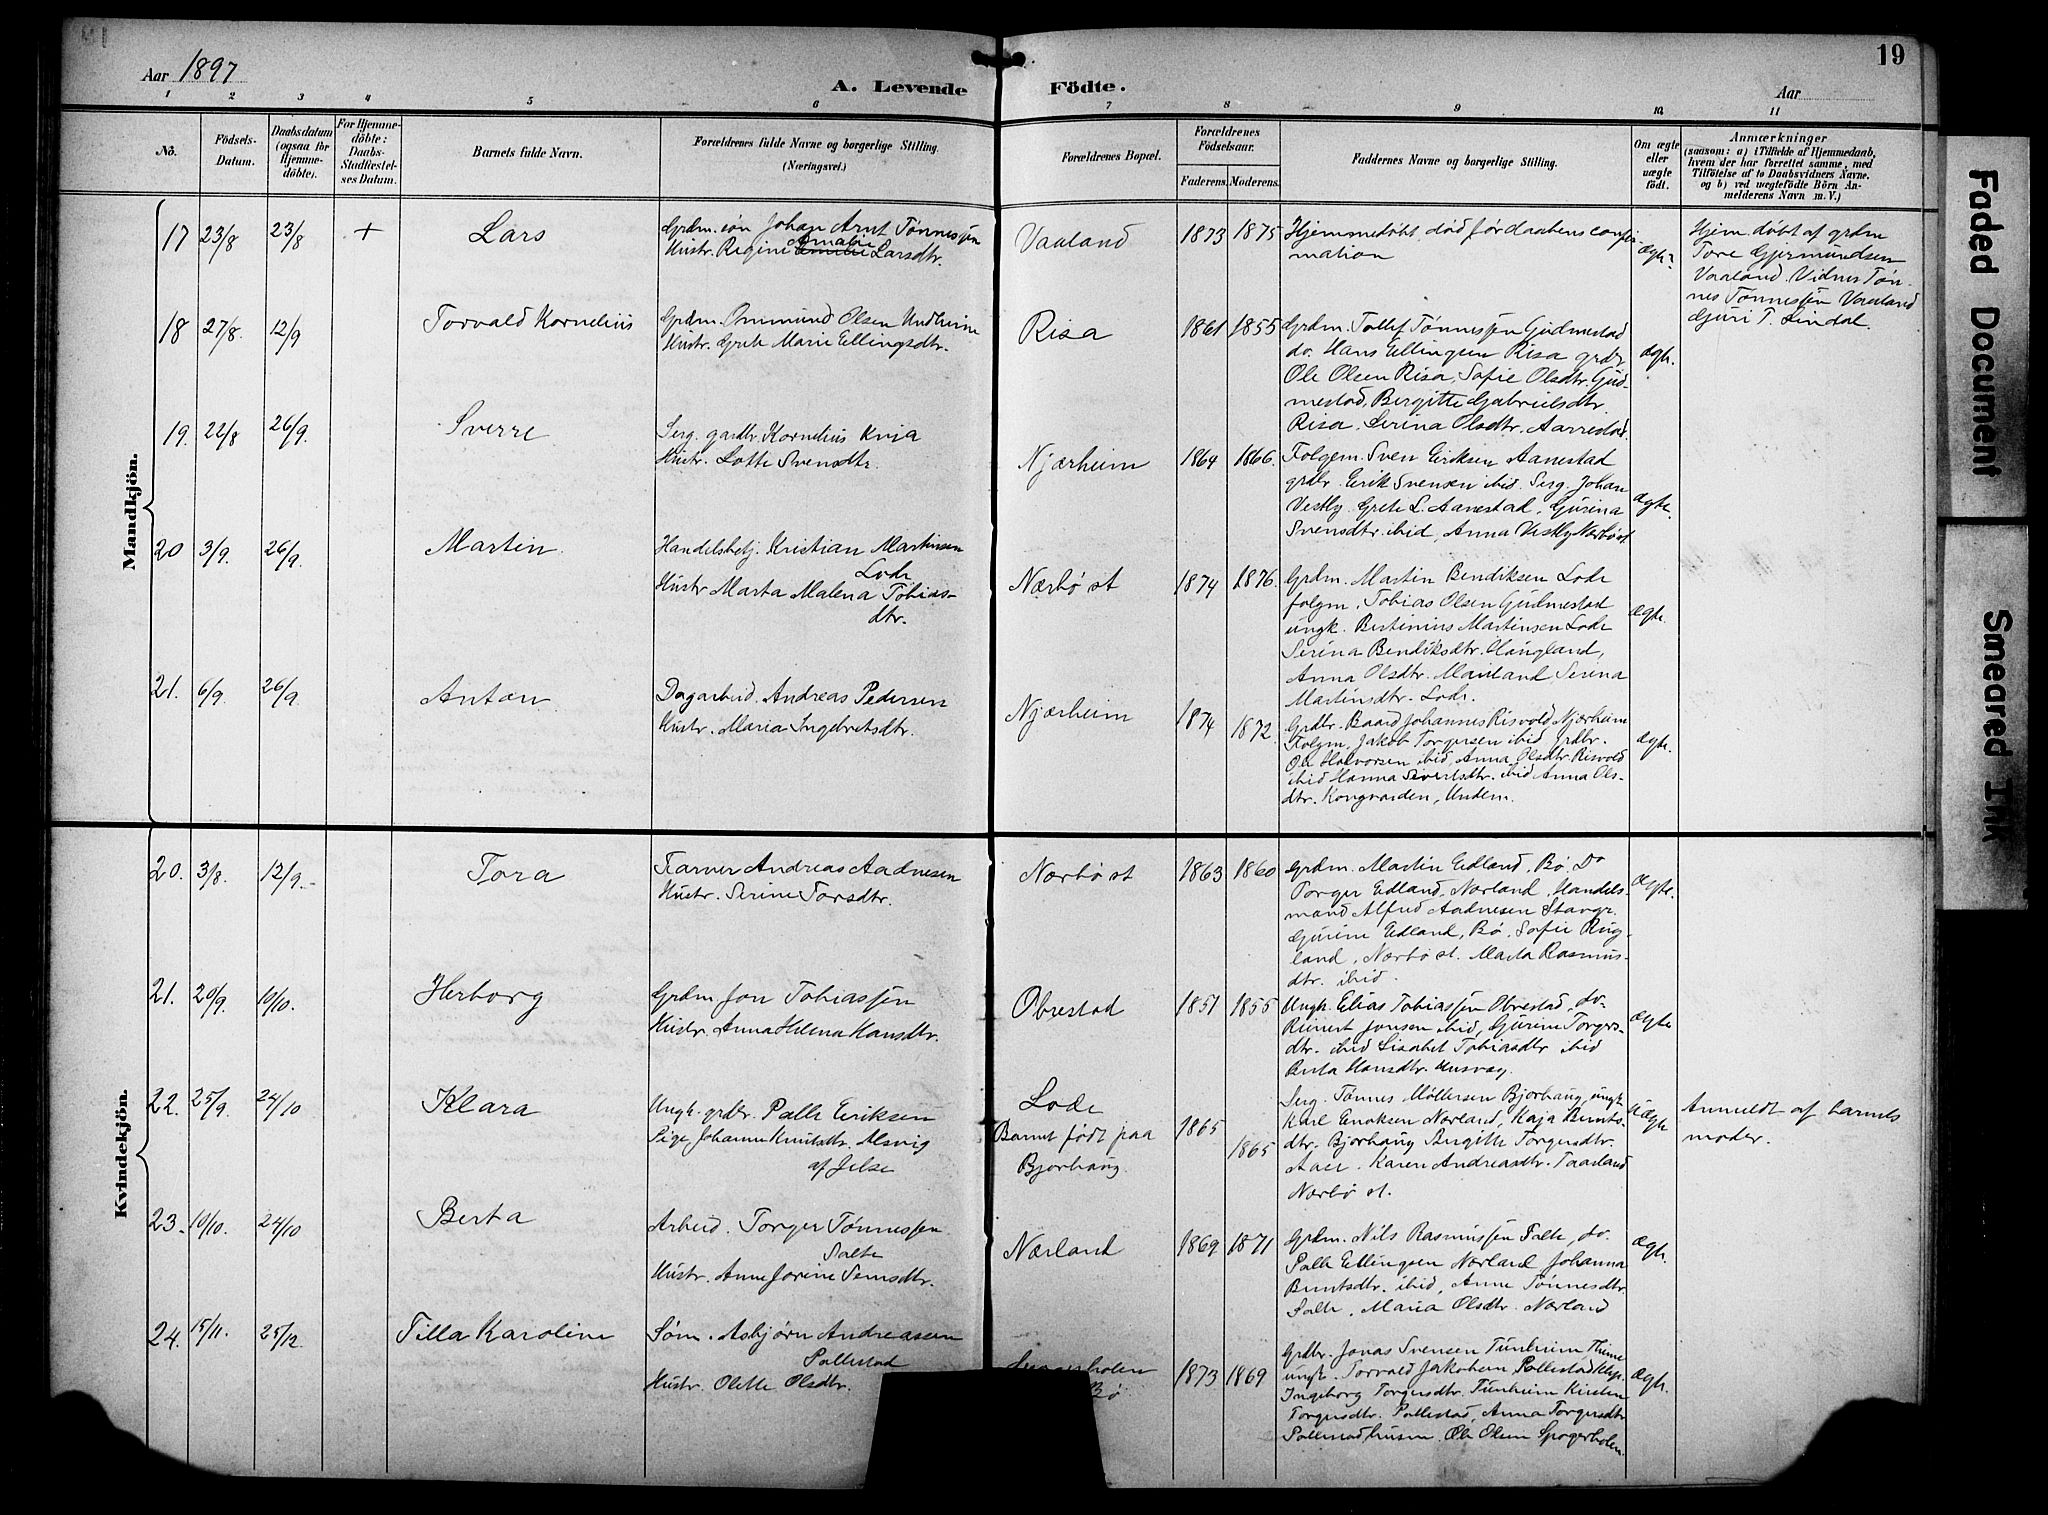 19
Aar 1897
A. Levende Födte.
Aar
1 2 3 4 5 6 7 8 9 10 11
No.
Födsels-
Datum.
Daabsdatum
(ogsaa for
Hjemme-
döbte).
For Hjemme-
döbte:
Daabs-
Stadfæstel-
ses Datum.
Barnets fulde Navn.
Forældrenes fulde Navne og borgerlige Stilling.
(Næringsvei.)
Forældrenes Bopæl.
Forældrenes
Födselsaar.
Faderens. Moderens.
Faddernes Navne og borgerlige Stilling.
Om ægte
eller
uægte
födt.
Anmærkninger
(saasom: a) i Tilfælde af Hjemmedaab,
hvem der har forrettet samme, med
Tilföielse af to Daabsvidners Navne.
og b) ved uægtefödte Börn An-
melderens Navn m. V.)
Mandkjön.
17 23/8 23/8 + Lars
Grdm. søn Johan Arnt Tønnessen
Hustr. Regine Amalie Larsdtr.
Vaaland 1873 1875
Hjemmedøbt, død før daabens confir
mation
ægte
Hjem. døbt af grdm
Tore Gjermundsen
Vaaland. Vidner Tøn-
nes Tønnessen Vaaland
Guri T. Lindal.
18 27/8. 12/9 Torvald Kornelius
Grdm. Ommund Olsen Undheim
Hustr. Grete Marie Ellingsdtr.
Risa 1861 1855
Grdm. Tollef Tønnessen Gudmestad
do. Hans Ellingsen Risa grdbr
Ole Olsen Risa, Sofie Olsdtr. Gud-
mestad, Bergitte Gabrielsdtr.
Risa, Serina Olsdtr. Aarrestad.
ægte.
19. 22/8 26/9. Sverre
Serg. gardbr. Kornelius Kvia
Hustr. Lotte Svensdtr.
Njærheim 1864 1866.
Folgem. Sven Eriksen Aanestad
grdbr. Erik Svensen ibid. Serg. Johan
Vestly. Grete L. Aanestad, Gurina
Svensdtr. ibid, Anna Vestly Nærbø st
ægte.
20 3/9. 26/9. Martin
Handelsbetj. Kristian Martinsen
Lode
Hustr Marta Malena Tobias-
dtr.
Nærbø st 1874 1876.
Grdm. Martin Bendiksen Lode
folgm. Tobias Olsen Gudmestad
ungk. Bertinius Martinsen Lode
Serina Bendiksdtr. Haugland,
Anna Olsdtr. Mauland, Serina
Martinsdtr. Lode.
ægte.
21. 6/9. 26/9. Anton
Dagarbeid. Andreas Pedersen
Hustr. Maria Ingebretsdtr.
Njærheim 1874 1872.
Grdbr. Baard Johannes Risvold, Njærheim
Folgm. Jakob Torgersen ibid, Grdbr.
Ole Halvorsen ibid, Anna Olsdtr. Risvold
ibid Hanna Sivertsdtr. ibid Anna Ols-
dtr. Kongvarden, Undem.
ægte.
Kvindekjön.
20. 3/8. 12/9. Tora
Garver Andreas Aadnesen
Hustr. Serine Torsdtr.
Nærbø st 1863 1860
Grdm. Martin Edland, Bø. Do
Torger Edland, Nærland, Handels-
mand Alfred Aadnesen Stavgr.
Gurine Edland, Bø. Sofie Rug-
land, Nærbø st. Marta Rasmus-
dtr. ibid.
ægte.
21. 20/9. 10/10. Herborg
Grdm Jon Tobiassen
Hustr. Anna Helena Hansdtr.
Obrestad 1851 1855
Ungk. Elias Tobiassen Obrestad, do.
Reinert Jonsen ibid, Gurine Torgers-
dtr. ibid Lisabet Tobiasdtr ibid
Berta Hansdtr. Husvæg.
ægte
22. 25/9 24/10 Klara
Ungk. grdbr. Palle Eriksen
Pige, Johanne Knutsdtr. Alsvig
af Jelse
Lode
Barnet født paa
Bjorhaug.
1865 1865
Serg. Tønnes Møllersen Bjorhaug, ungk
Karl Enoksen Nærland, Kaja Berents-
dtr. Bjorhaug Birgitte Torgersdtr.
Karen Andreasdtr. Taarland
Nærbø st.
uægte
Anmeldt af barnets
moder.
23. 10/10. 24/10 Berta
Arbeid. Torger Tønnessen
Salte
Hustr. Anne Jorine Semsdtr.
Nærland 1869 1871
Grdm. Nils Rasmussen Salte, do.
Palle Ellingsen Nærland Johanna
Berntsdtr. ibid, Anne Tønnesdtr
Salte, Maria Olsdtr. Nærland
ægte.
24. 15/11. 25/12. Tilla Karoline
Søm. Asbjørn Andreassen
Pollestad
Hustr. Olette Olsdtr.
Bø
1873 1869
Grdbr. Jonas Svensen Tunheim Thime
ungk. Torvald Jakobsen Pollestad Klep.
Ingeborg Torgersdtr. Tunheim Kirsten
Torgersdtr. Pollestad, Anna Torgersdtr
Pollestadhusen. Ole Olsen
ægte.
Faded Document
Smeared Ink